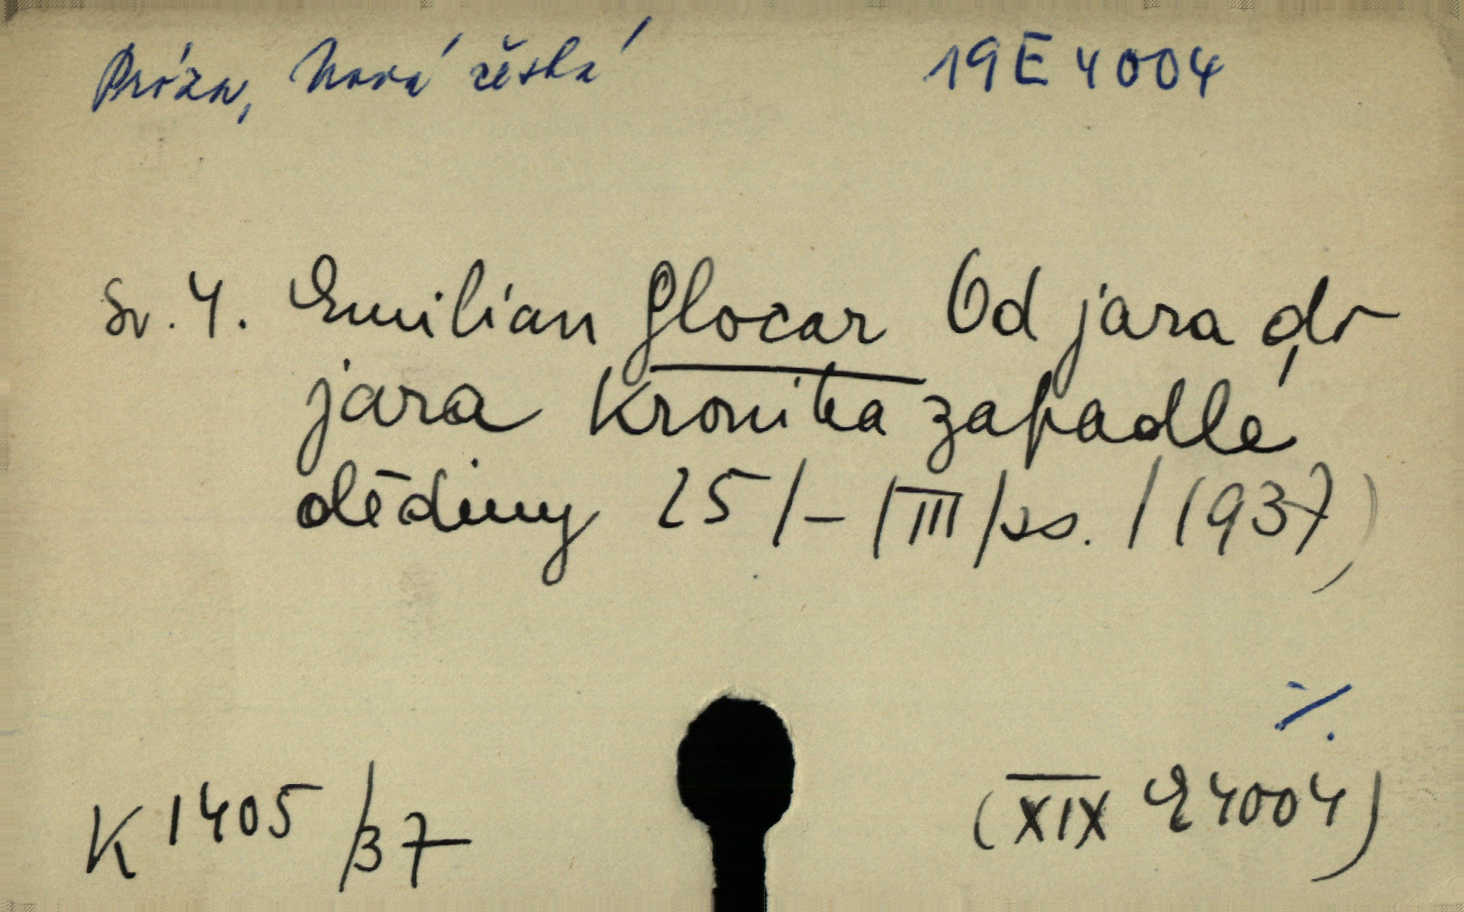 Próza, Nová česká 19 E 4004
Sv. 4. Emilian Glocar Od jara do
jara Kronika zapadlé
dědiny 25/– |III|ss. / (1937)
%.
K 1405/37 (XIX E 4004)